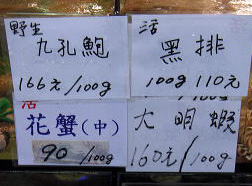 野生
九孔鮑
166元/100g
活
黑排
100g 110元
活
花蟹(中)
90/100g
大明蝦
160元/100g